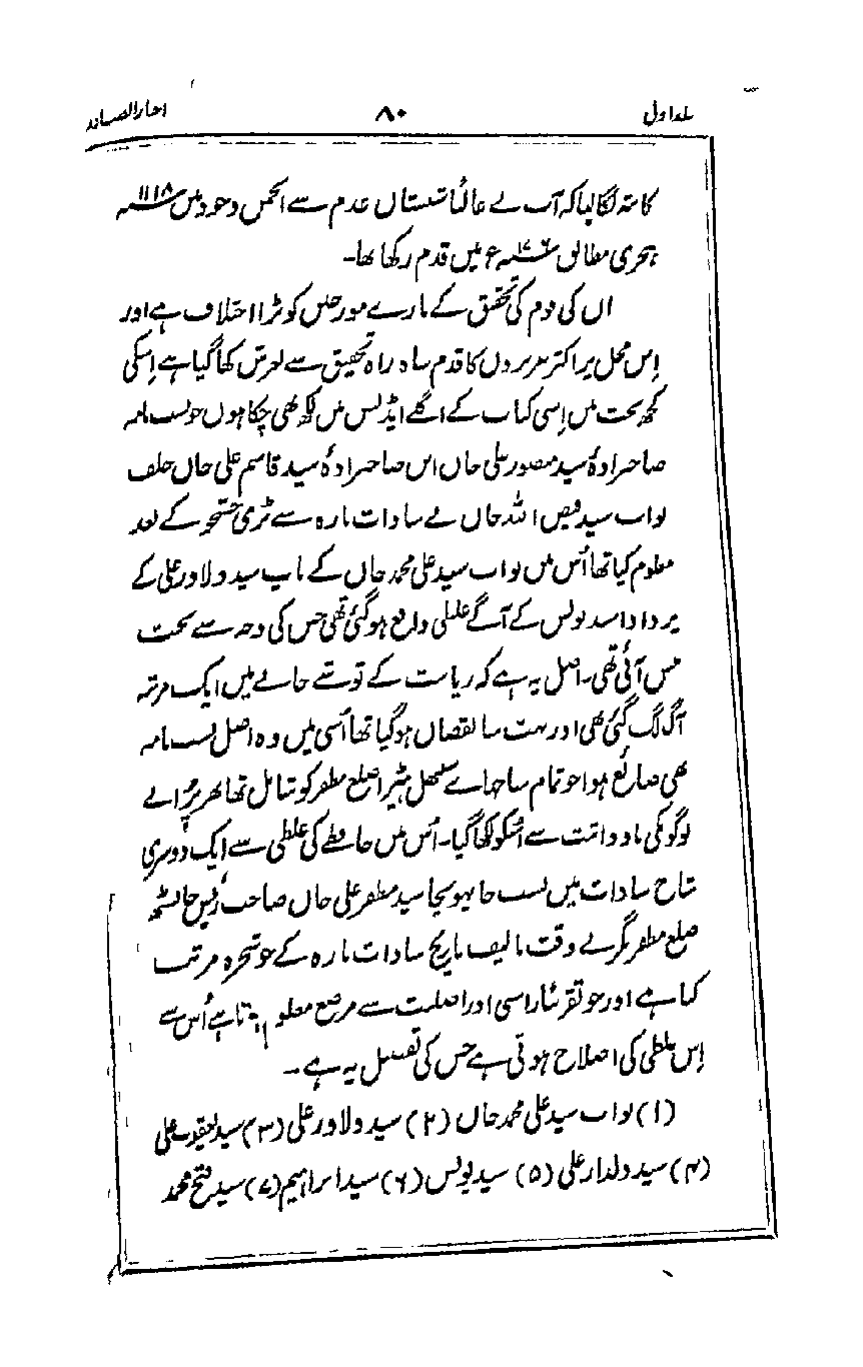 جلد اول ۸۰ اخبار الصنادید
کا پتہ لگا لیا کہ آپ نے غالباً شبستان عدم سے انجمن وجود میں ۱۱۱۸ سنہ
ہجری مطابق ۱۷۰۶ء میں قدم رکھا تھا۔
ان کی قوم کی تحقیق کے بارے مورخین کو بڑا اختلاف ہے اور
اِس محل پر اکثر کا قدم راہ تحقیق سے لغزش کھا گیا ہے اِسکی
کچھ بحث میں اِسی کتاب کے اگلے ایڈیشن میں لکھ بھی چکا ہوں جو نسب نامہ
صاحبزادۂ سید منصور علی خاں ابن صاحبزادۂ سید قاسم علی خاں خلف
نواب سید فیض اللہ خاں نے سادات بارہ سے بڑی جستجو کے بعد
معلوم کیا تھا اُس میں نواب سید علی محمد خاں کے باپ سید دلاور علی کے
پردادا سید یونس کے آگے غلطی واقع ہو گئی تھی جس کی وجہ سے بحث
پیش آئی تھی۔ اصل یہ ہے کہ ریاست کے توشے خانے میں ایک مرتبہ
آگ لگ گئی تھی اور بہت سا نقصان ہو گیا تھا اُسی میں وہ اصل نسب نامہ
بھی ضائع ہوا جو تمام ساجہائے سنبھل ہیڑا ضلع مظفر کو شامل تھا پھر پُرانے
لوگوں کی یادداشت سے اُسکو لکھا گیا۔ اُس میں حافظے کی غلطی سے ایک دوسری
شاخ سادات میں نسب جا پہونچا سید مظفر علی خاں صاحب رئیس جانسٹھ
ضلع مظفر نگر نے وقت تالیف تاریخ سادات بارہ کے جو شجرہ مرتب
کیا ہے اور جو تقریباً راستی اور اصلیت سے مرصع معلوم ہوتا ہے اُس سے
اِس غلطی کی اصلاح ہوتی ہے جس کی تفصیل یہ ہے۔
(۱) نواب سید علی محمد خاں (۲) سید دلاور علی (۳) سید یعقوب علی
(۴) سید دلدار علی (۵) سید یونس (۶) سید ابراہیم (۷) سید فتح محمد